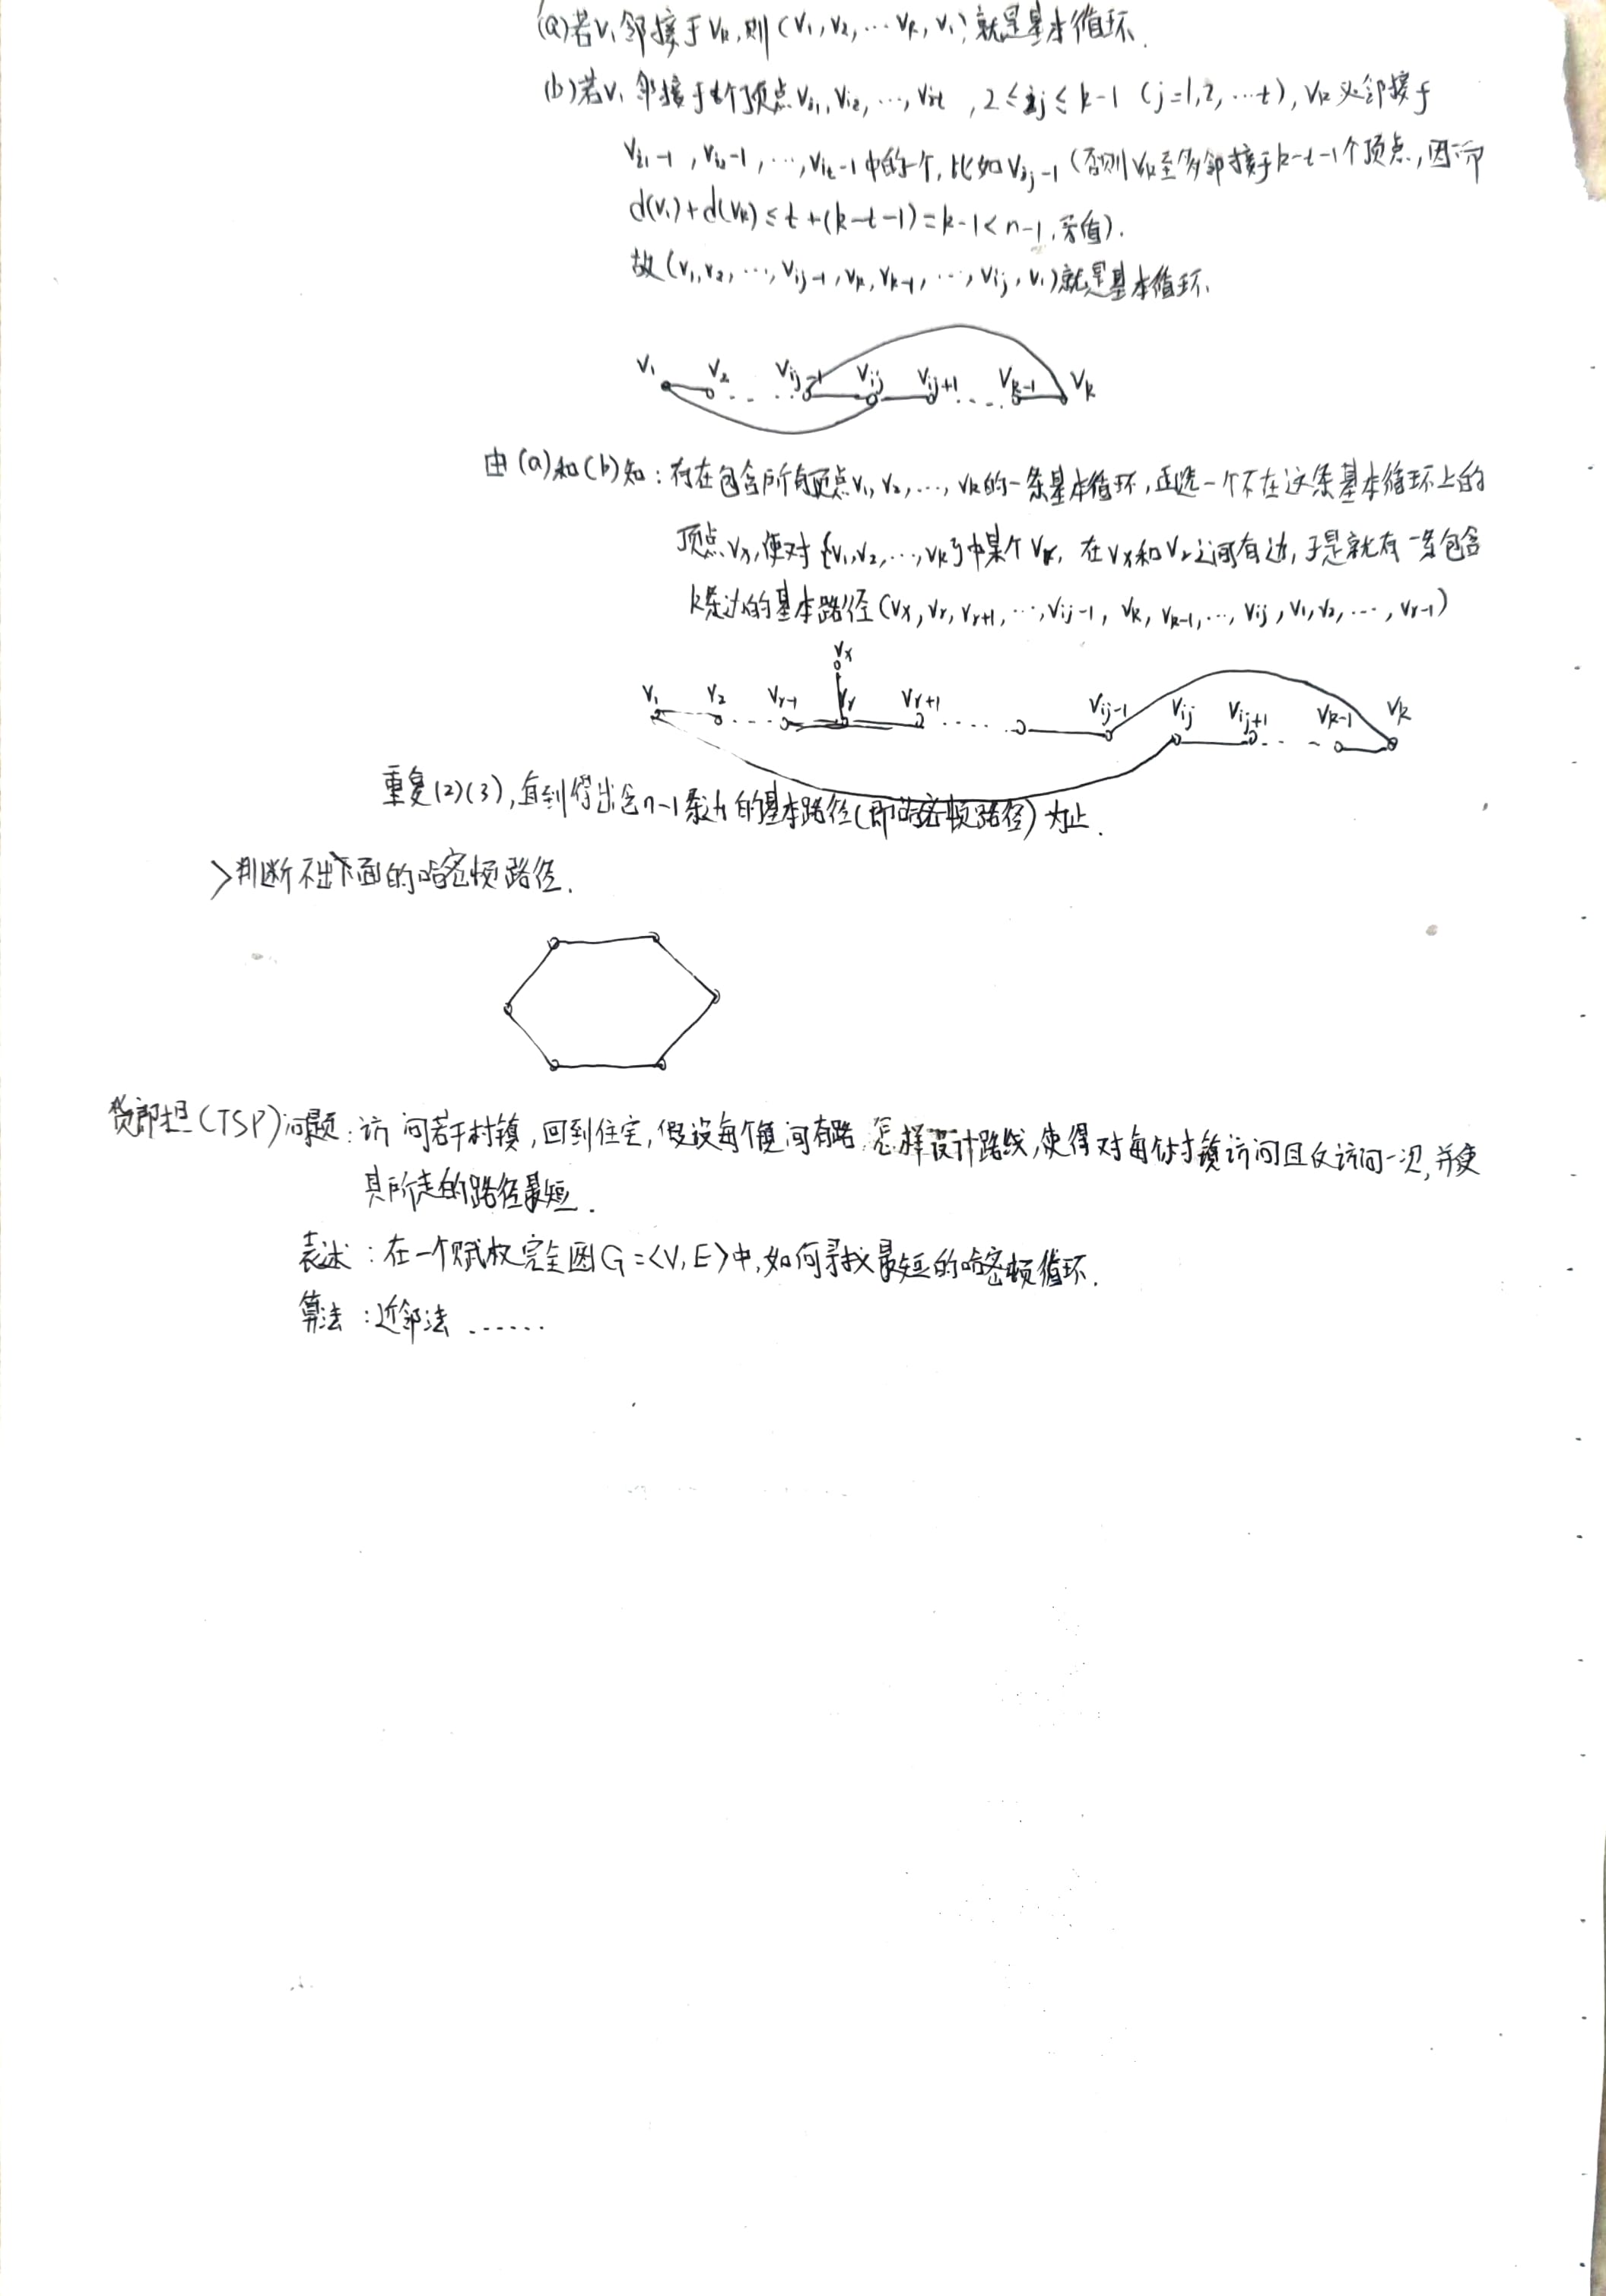 (a)若v₁邻接于vₖ,则(v₁,v₂,…vₖ,v₁)就是基本循环.
(b)若v₁邻接于t个顶点vᵢ₁,vᵢ₂,…,vᵢt ,2≤ij≤k-1 (j=1,2,…t),vₖ必邻接于
vᵢ₁-1,vᵢ₂-1,…,vᵢt-1中的一个,比如vᵢj-1(否则vₖ至多邻接于k-t-1个顶点,因而
d(v₁)+d(vₖ)≤t+(k-t-1)=k-1<n-1,矛盾).
故(v₁,v₂,…,vᵢj-1,vₖ,vₖ-1,…,vᵢj,v₁)就是基本循环.
v₁ v₂ vᵢj-1 vᵢj vᵢj+1 vₖ-1 vₖ
由(a)和(b)知:存在包含所有顶点v₁,v₂,…,vₖ的一条基本循环,再选一个不在这条基本循环上的
顶点vₓ,使对{v₁,v₂,…,vₖ}中某个vᵣ,在vₓ和vᵣ之间有边,于是就有一条包含
k条边的基本路径(vₓ,vᵣ,vᵣ+1,…,vᵢj-1,vₖ,vₖ-1,…,vᵢj,v₁,v₂,…,vᵣ-1)
vₓ
v₁ v₂ vᵣ-1 vᵣ vᵣ+1 vᵢj-1 vᵢj vᵢj+1 vₖ-1 vₖ
重复(2)(3),直到得出含n-1条边的基本路径(即哈密顿路径)为止.
>判断不出下面的哈密顿路径.
货郎担(TSP)问题:访问若干村镇,回到住宅,假设每个镇间有路,怎样设计路线,使得对每个村镇访问且仅访问一次,并使
其所走的路径最短.
表述:在一个赋权完全图G=<V,E>中,如何寻找最短的哈密顿循环.
算法:近邻法……